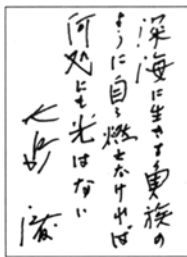 深海に生きる魚族の
ように自ら燃えなければ
何処にも光はない
大島 渚